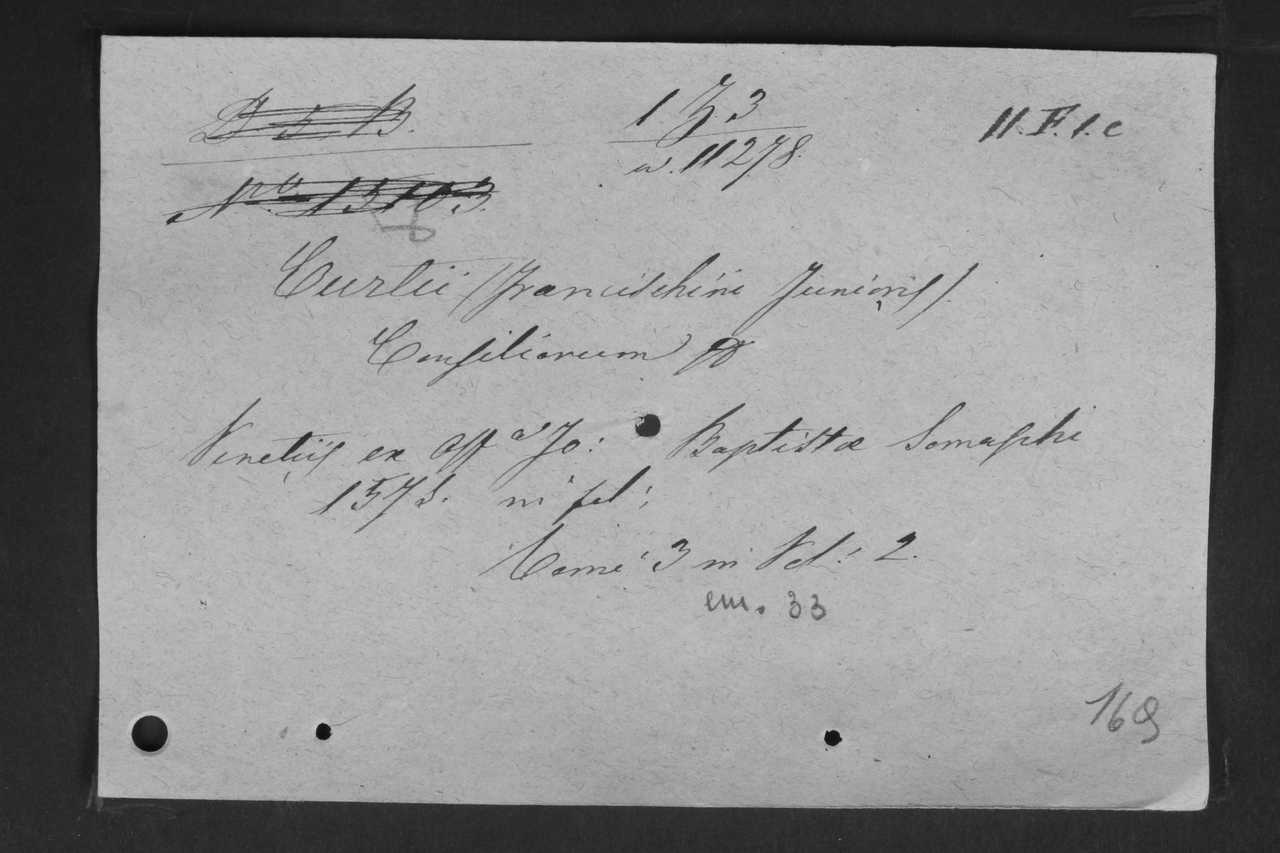 D 5 B.
1 Z 3
11.F.1.c
N° 15103.
w. 11278.
8
Curtii (Francischini Junioris).
Consiliorum
Venetiis ex off ᵃ Jo: Baptistæ Somaschi
157 in fol:
Tomi 3 in Vol: 2.
em. 33
169